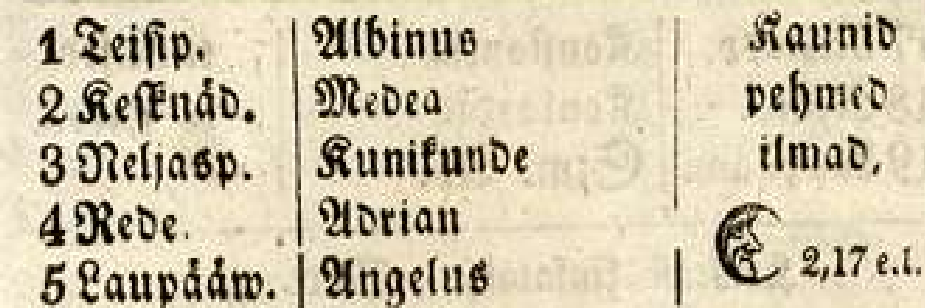 1 Teisip. Albinus Kaunid
2 Keſknäd. Medea pehmed
3 Neljasp. Kunikunde ilmad,
4 Rede. Adrian
5 Laupääw. Angelus 2,17 e.l.